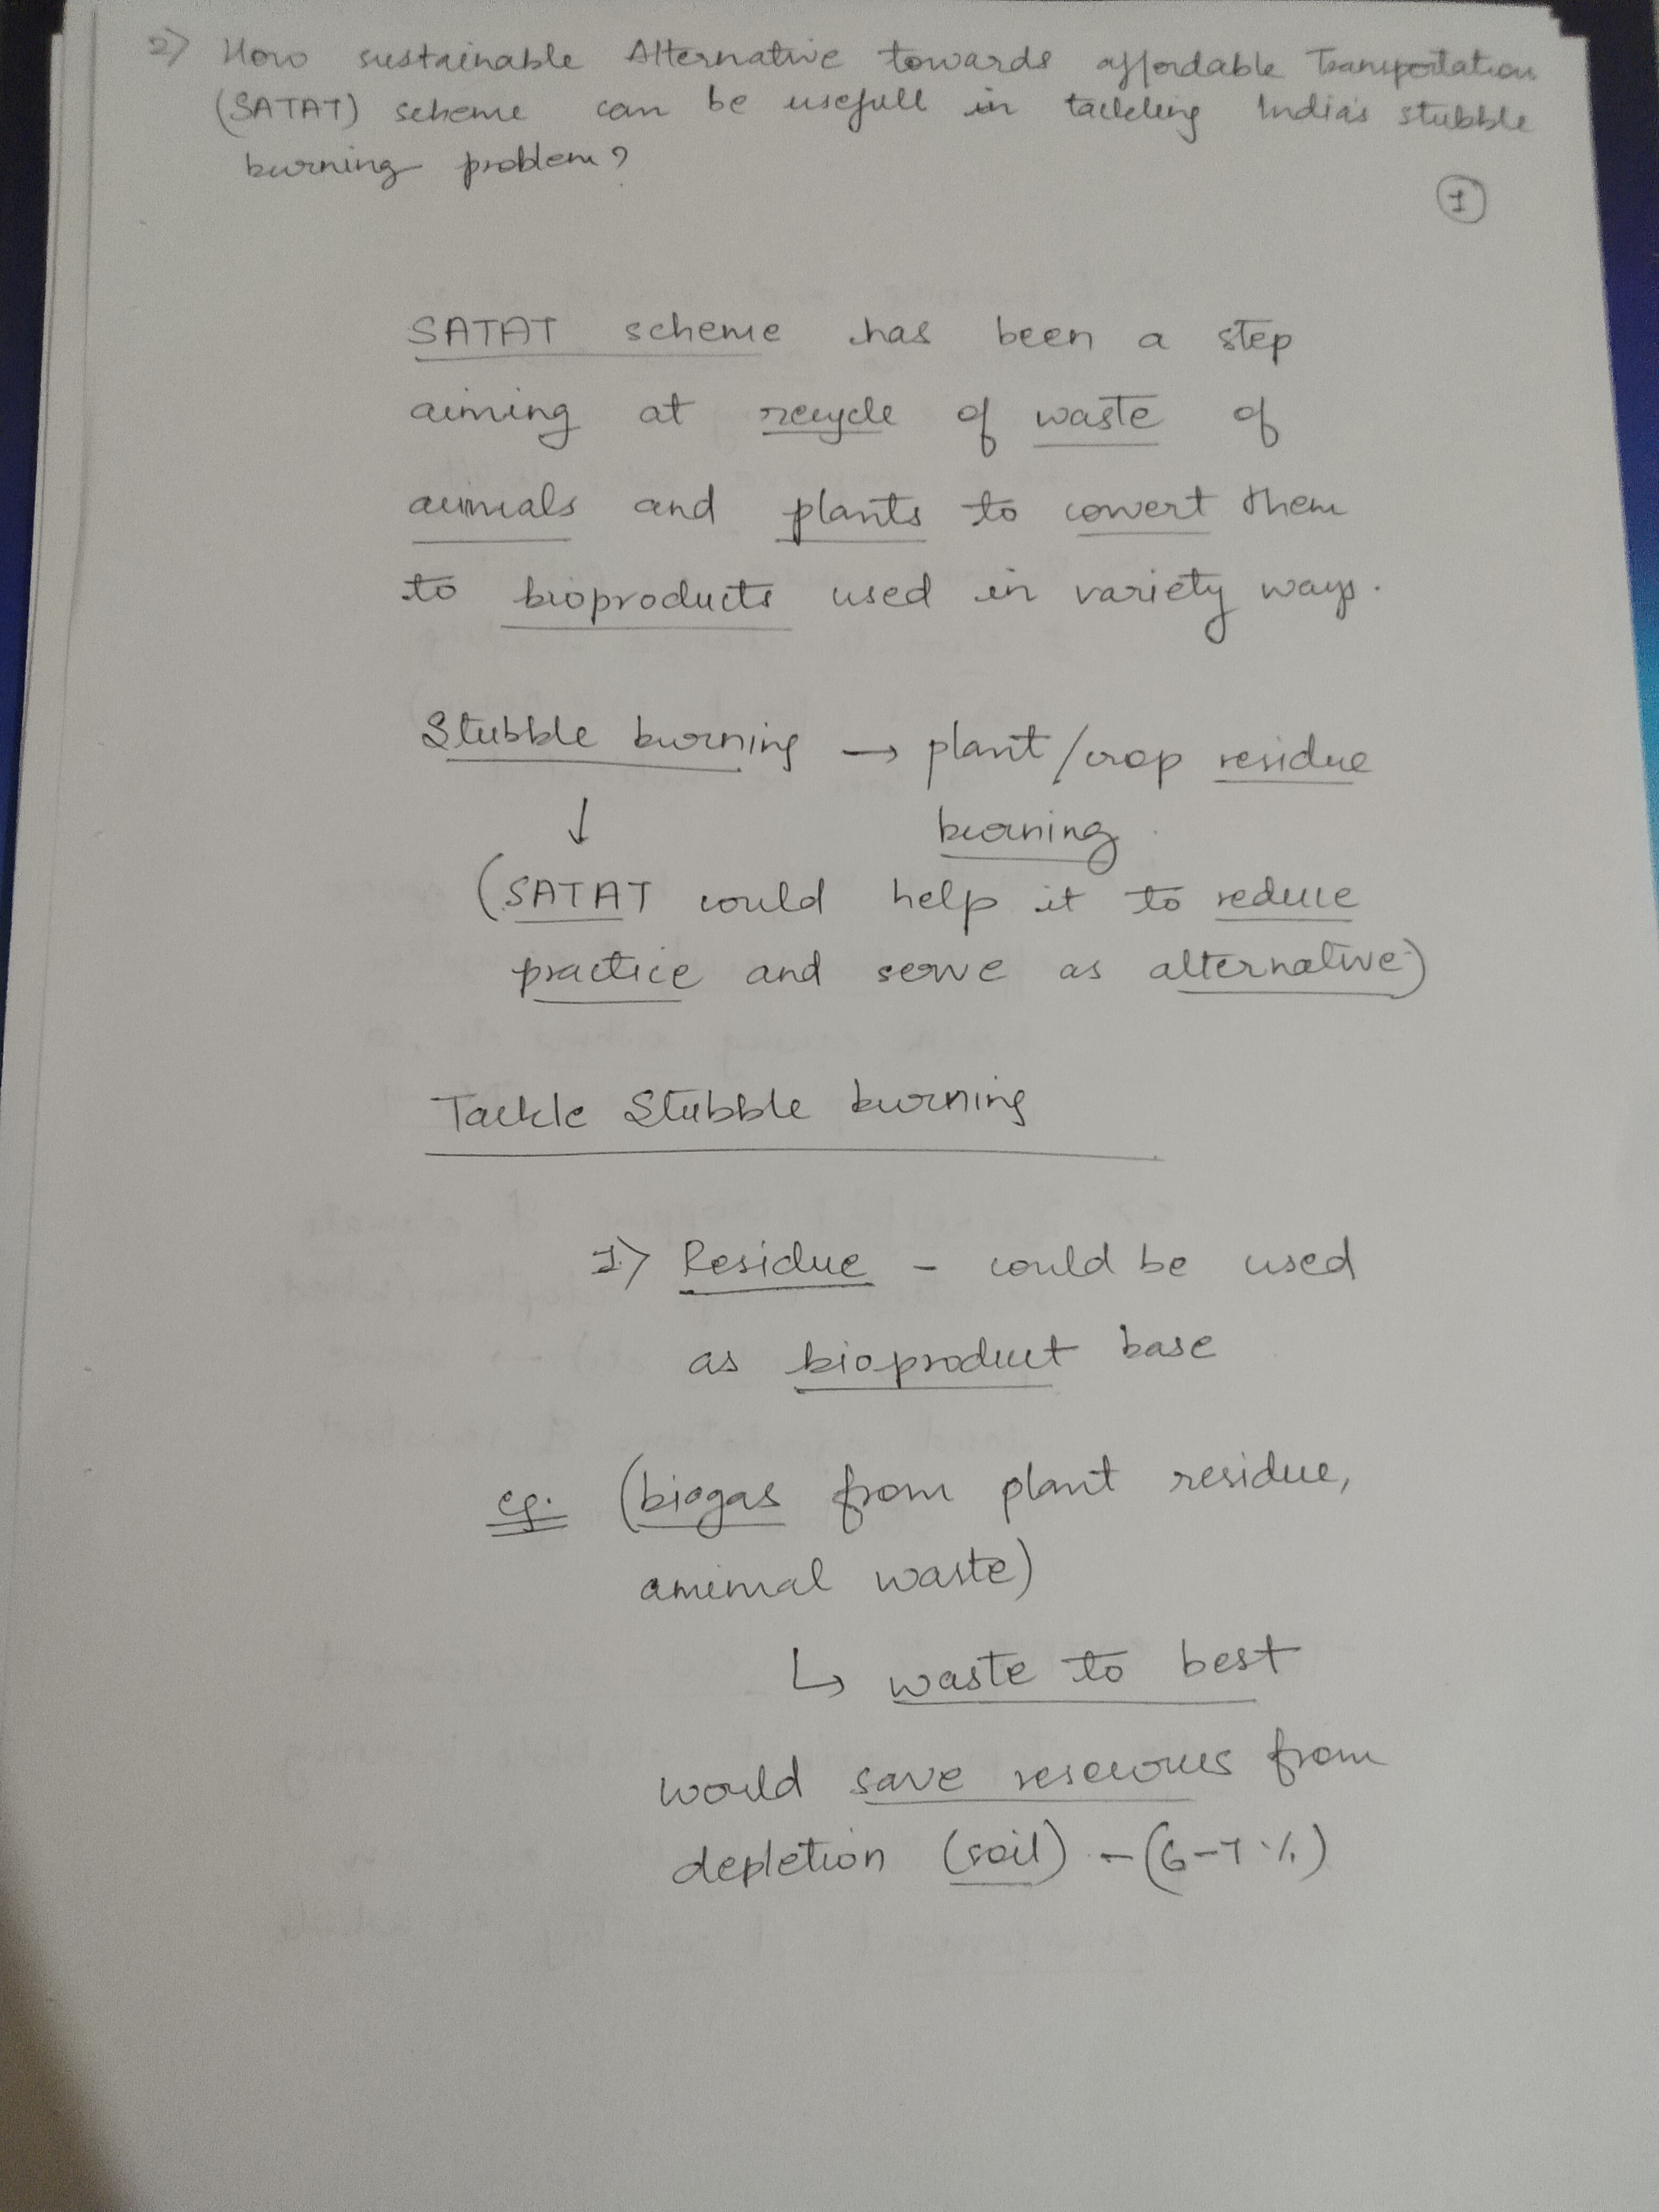 2) How sustainable Alternative towards affordable Transportation
(SATAT) scheme can be usefull in tackling India's stubble
burning problem?
1
SATAT scheme has been a step
aiming at recycle of waste of
animals and plants to convert them
to bioproducts used in variety ways.
Stubble burning → plant/crop residue
burning
↓
(SATAT could help it to reduce
practice and serve as alternative)
Tackle Stubble burning
1) Residue - could be used
as bioproduct base
eg. (biogas from plant residue,
animal waste)
↳ waste to best
would save resources from
depletion (soil) - (6-7%)